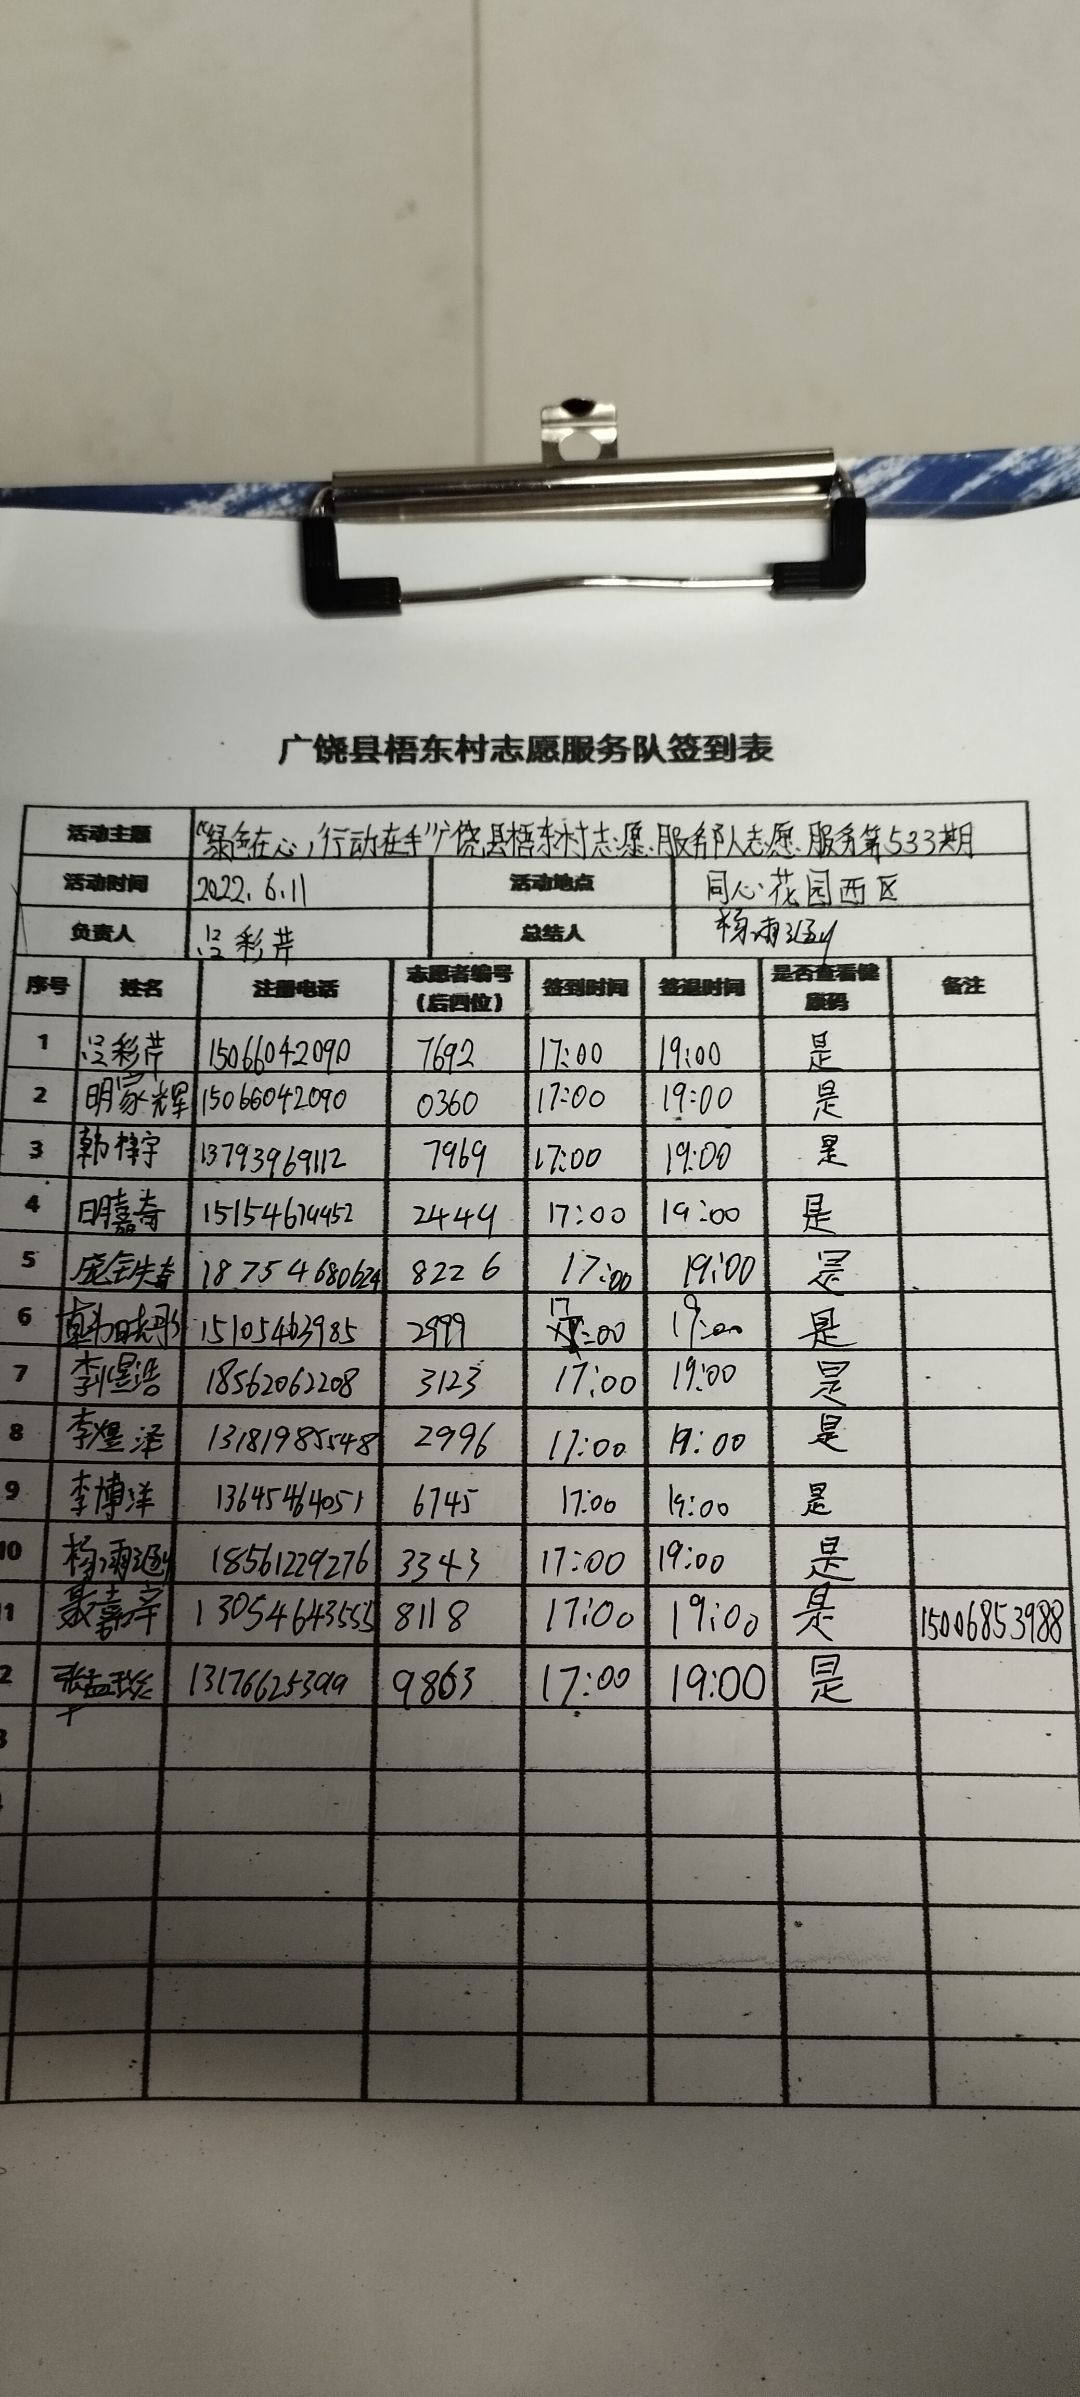 广饶县梧东村志愿服务队签到表
活动主题 “绿色在心，行动在手”广饶县梧东村志愿服务队志愿服务第533期
活动时间 2022.6.11 活动地点 同心花园西区
负责人 彩芹 总结人 杨雨
序号 姓名 注册电话 志愿者编号（后四位） 签到时间 签退时间 是否查看健康码 备注
1 彩芹 15066042090 7692 17:00 19:00 是
2 明家辉 15066042090 0360 17:00 19:00 是
3 韩梓宇 13793969112 7969 17:00 19:00 是
4 明嘉奇 2444 17:00 19:00 是
5 18754680624 8226 17:00 19:00 是
6 15105463985 2999 17:00 19:00 是
7 李煜浩 18562062208 3123 17:00 19:00 是
8 李煜泽 13181985548 2996 17:00 19:00 是
9 李博洋 13645464051 6745 17:00 19:00 是
10 杨雨 18561229276 3343 17:00 19:00 是
1 聂嘉 13054643555 8118 17:00 19:00 是 15006853988
2 张孟 13176625399 9863 17:00 19:00 是
3